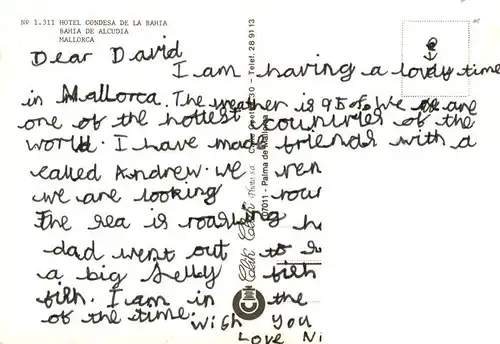 Nº 1.311 HOTEL CONDESA DE LA BAHIA
BAHIA DE ALCUDIA
MALLORCA
Dear David
I am having a lovely time
in Mallorca. The weather is 95 of. We are
one of the hottest countries of the
world. I have made friends with a
called Andrew. We ren
we are looking rour
The sea is roasting ha
dad went out to s
a big Jelly fish
fish. I am in the
of the time. Wish you
Love Ni
07011 - Palma de Mallorca
Telef. 28 91 13